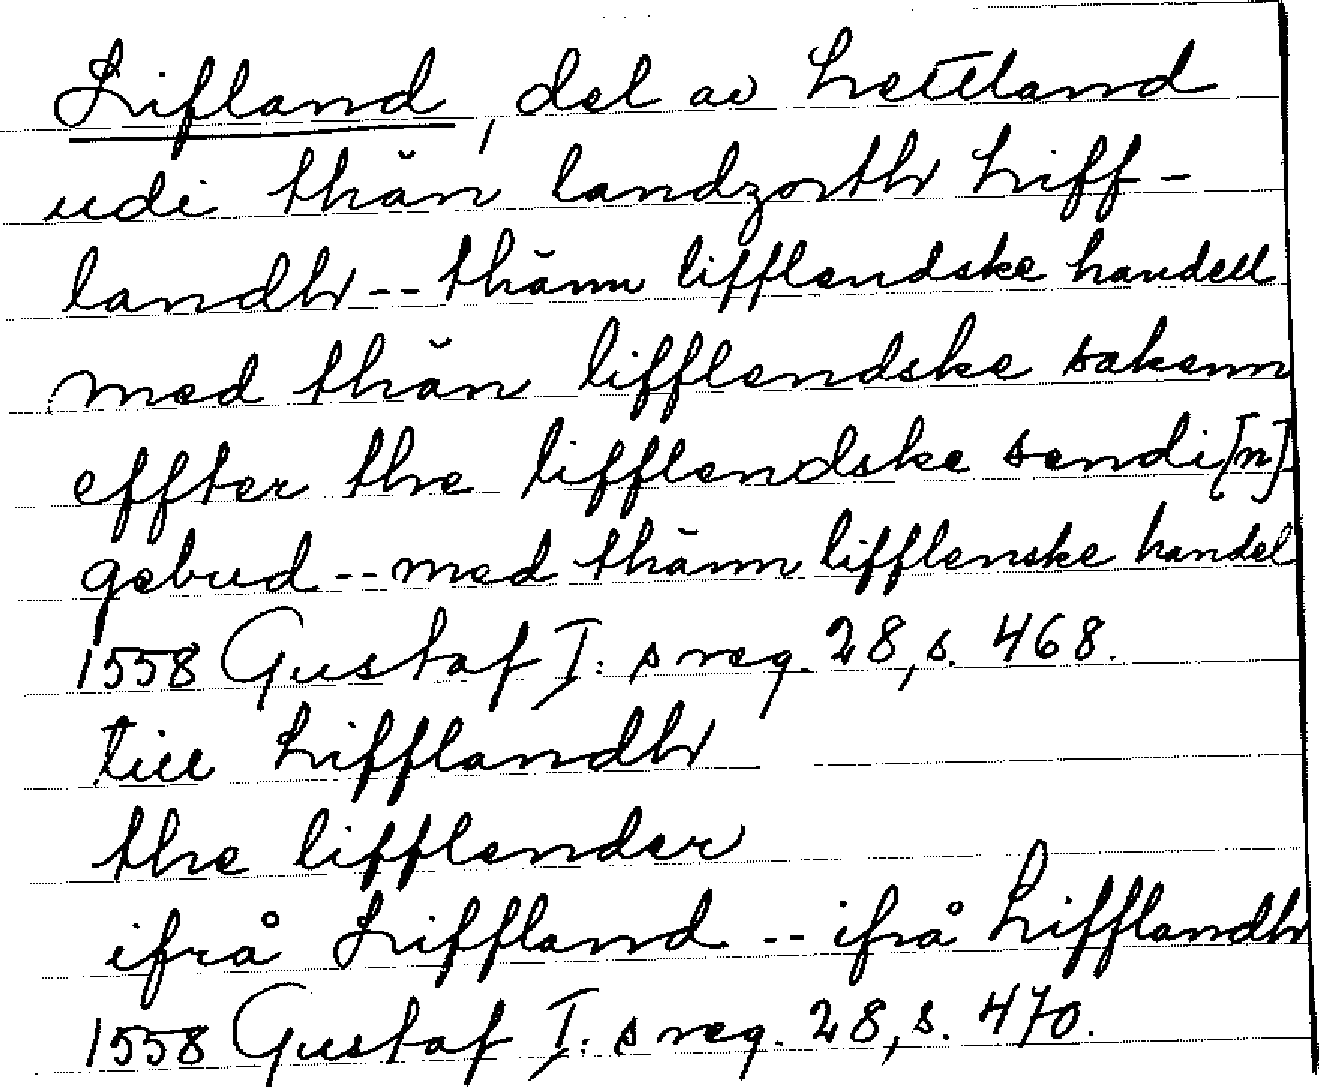 Lifland, del av Lettland
udi thăn landzorth Liff-
landh -- thănn lifflendske handell
med thăn lifflendske sakenn
effter the lifflendske sendi[n]
gebud -- med thănn lifflenske handel
1558 Gustaf I:s reg. 28, s. 468.
till Lifflandh
the lifflender
ifrå Liffland -- ifrå Lifflandh
1558 Gustaf I:s reg. 28, s. 470.